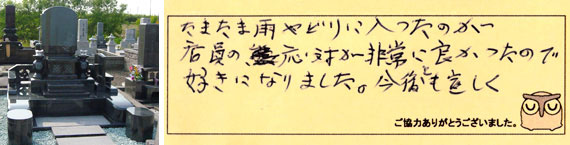 たまたま雨やどりに入ったのが
店員の応対が非常に良かったので
好きになりました。今後とも宜しく
ご協力ありがとうございました。